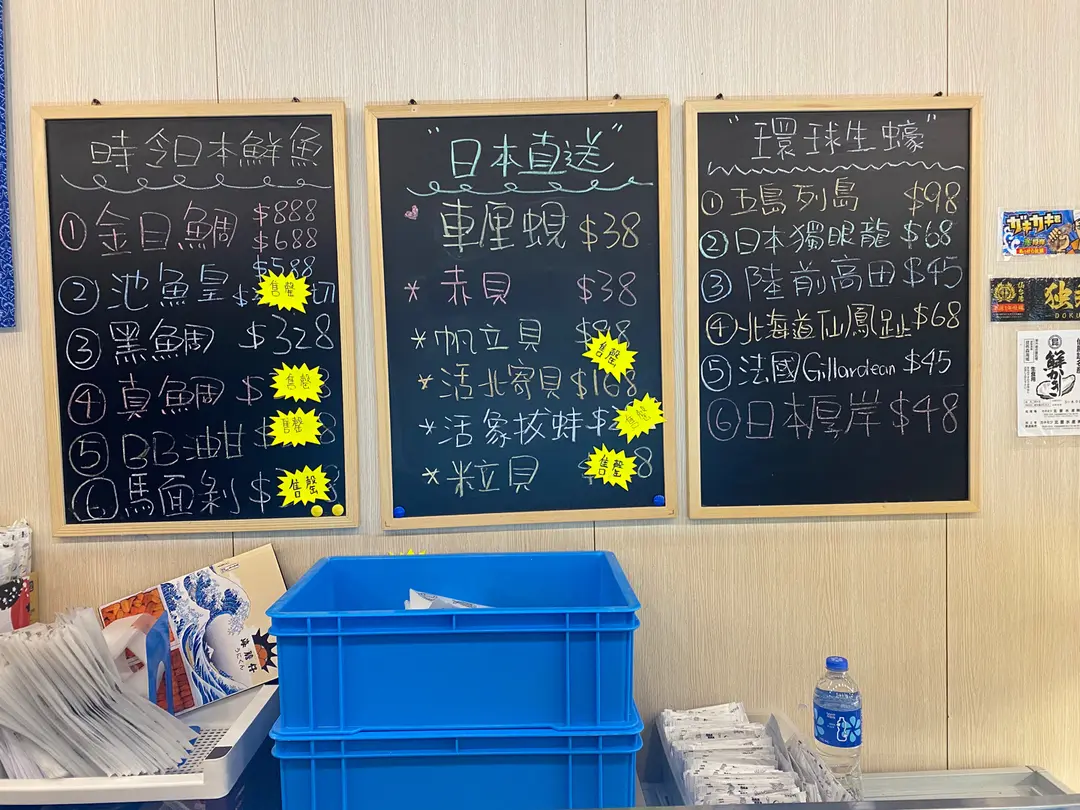 時令日本鮮魚
① 金目鯛 $888
$688
$588
② 池魚皇 $
售罄
切
③ 黑鯛 $328
④ 真鯛 $
售罄
⑤ BB油甘 $
售罄
8
⑥ 馬面剝 $3
售罄
8
"日本直送"
車厘蜆 $38
* 赤貝 $38
* 帆立貝 $88
售罄
* 活北寄貝 $168
* 活象拔蚌 $
售罄
* 粒貝
售罄
8
"環球生蠔"
① 五島列島 $98
② 日本獨眼龍 $68
③ 陸前高田 $45
④ 北海道仙鳳趾 $68
⑤ 法國Gillardean $45
⑥ 日本厚岸 $48
ガキガキ
独
DOKU
鮮かき
生食用